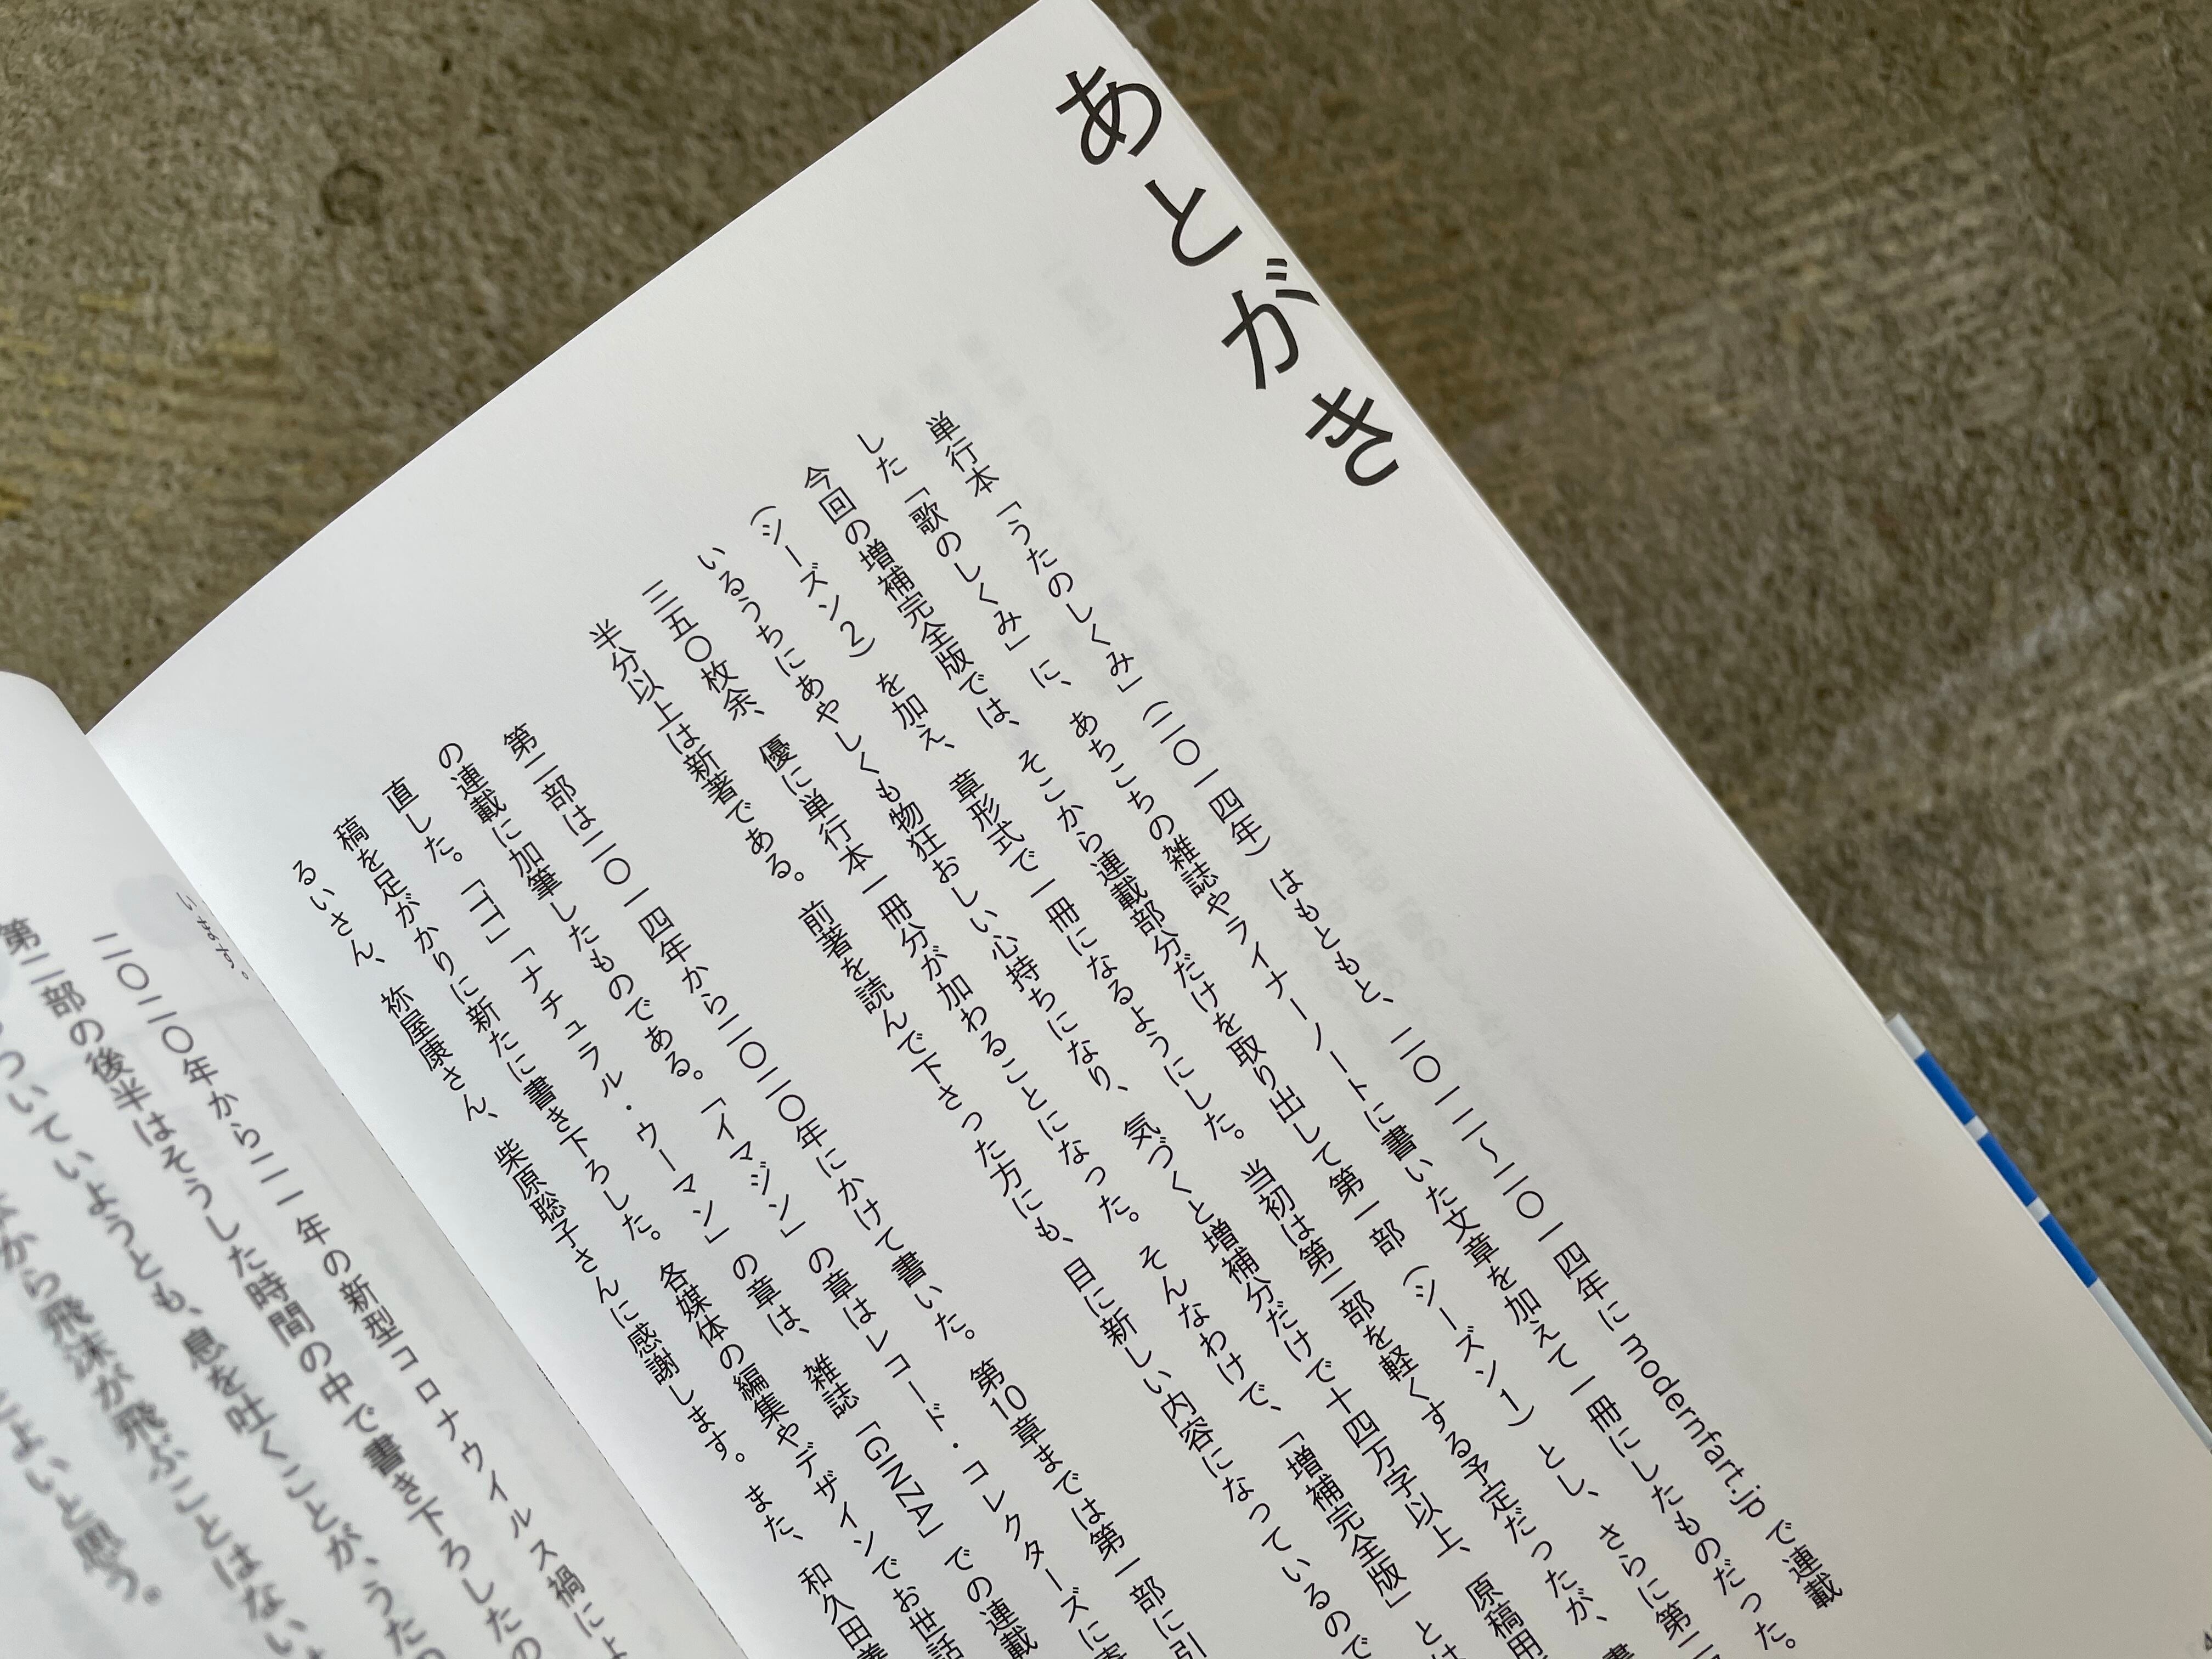 あとがき
単行本「うたのしくみ」(二〇一四年)はもともと、二〇一二〜二〇一四年に modernfart.jp で連載
した「歌のしくみ」に、あちこちの雑誌やライナーノートに書いた文章を加えて一冊にしたものだった。
今回の増補完全版では、そこから連載部分だけを取り出して第一部(シーズン1)とし、さらに第二
(シーズン2)を加え、章形式で一冊になるようにした。当初は第二部を軽くする予定だったが、書
いるうちにあやしくも物狂おしい心持ちになり、気づくと増補分だけで十四万字以上、原稿用
三五〇枚余、優に単行本一冊分が加わることになった。そんなわけで、「増補完全版」とは
半分以上は新著である。前著を読んで下さった方にも、目に新しい内容になっているので
第二部は二〇一四年から二〇二〇年にかけて書いた。第10章までは第一部に引
の連載に加筆したものである。「イマジン」の章はレコード・コレクターズに
直した。「TT」「ナチュラル・ウーマン」の章は、雑誌「GINZA」での連載
稿を足がかりに新たに書き下ろした。各媒体の編集やデザインでお世話
るいさん、祢屋康さん、柴原聡子さんに感謝します。また、和久田
います。
二〇二〇年から二一年の新型コロナウイルス禍によ
第二部の後半はそうした時間の中で書き下ろしたの
ついていようとも、息を吐くことが、うた
から飛沫が飛ぶことはない
とよいと思う。